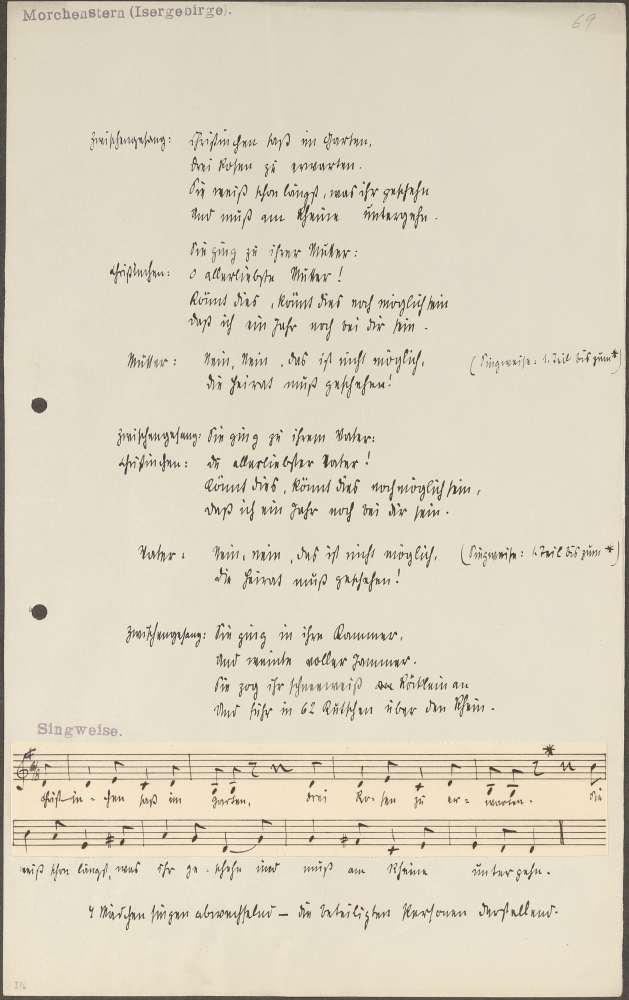 Morchenstern (Isergebirge).
69
Zwischengesang: Christinchen saß im Garten,
drei Rosen zu erwarten.
Sie weiß schon längst, was ihr geschehn
Und muß am Rheine untergehn.
Sie ging zu ihrer Mutter:
Christinchen: O allerliebste Mutter!
Könnt dies, könnt dies noch möglich sein
Daß ich ein Jahr noch bei dir sein.
Mutter: Nein, Nein, das ist nicht möglich, (Singweise: 1. Teil bis zum *)
die Heirat muß geschehen!
Zwischengesang: Sie ging zu ihrem Vater:
Christinchen: du allerliebster Vater!
Könnt dies, könnt dies noch möglich sein,
daß ich ein Jahr noch bei dir sein.
Vater: Nein, nein, das ist nicht möglich, (Singweise: 1. Teil bis zum *)
die Heirat muß geschehen!
Zwischengesang: Sie ging in ihre Kammer,
Und weinte voller Jammer.
Sie zog ihr schneeweiß Röcklein an
Und fuhr in 62 Kutschen über den Rhein.
Singweise.
*
Christ-in-chen saß im Garten, drei Ro-sen zu er-warten. Sie
weiß schon längst, was ihr ge-schehn und muß am Rheine untergehn.
4 Mädchen singen abwechselnd – die beteiligten Personen darstellend.